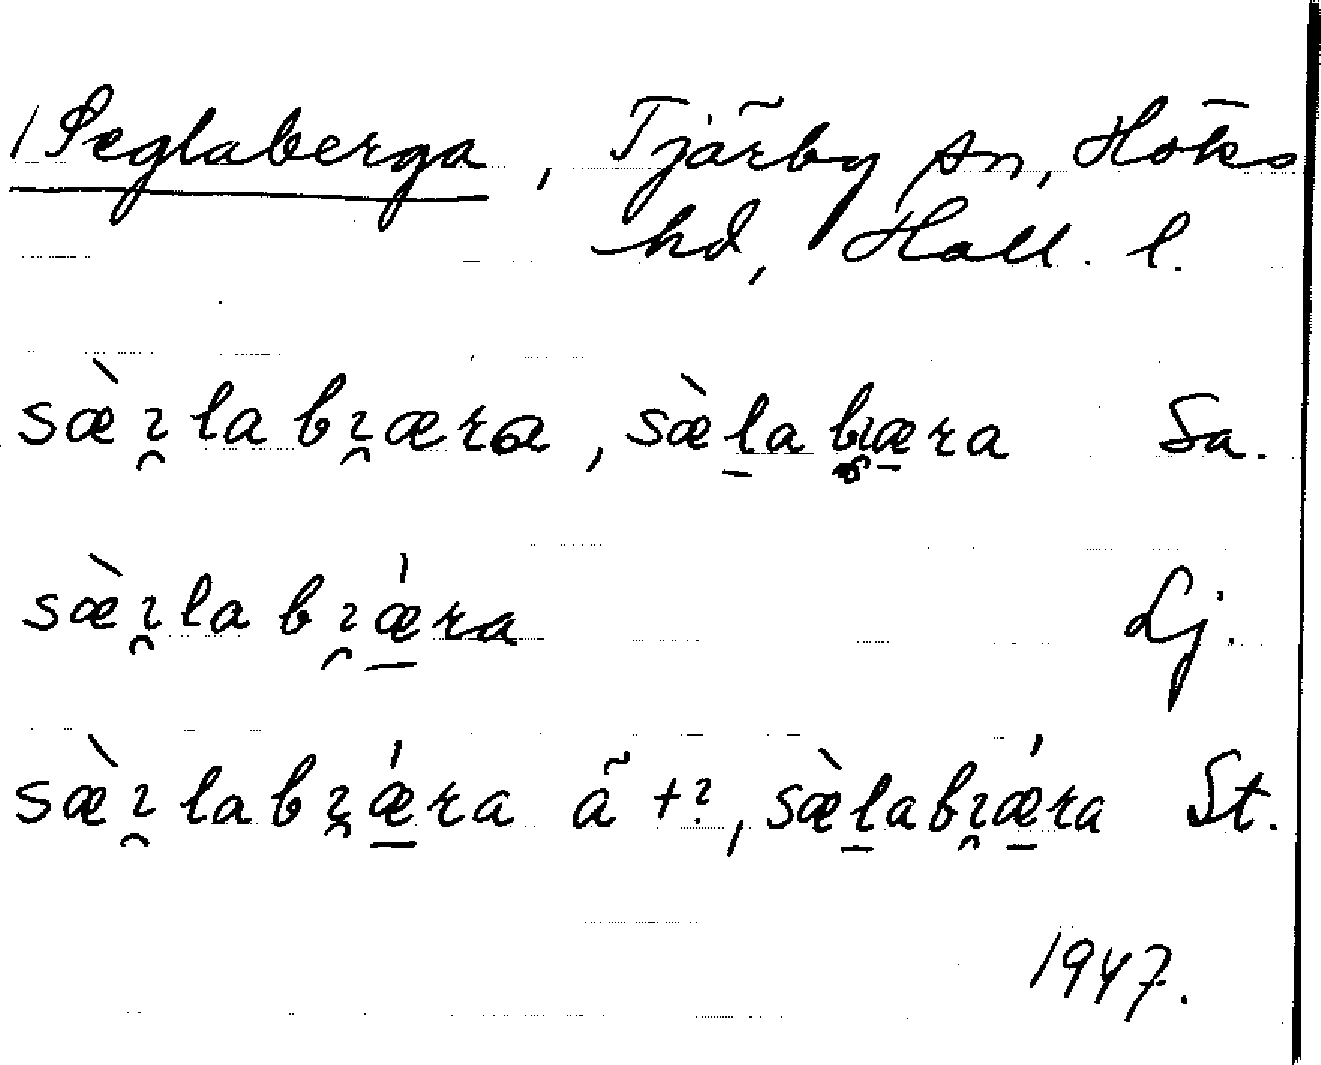 / Seglaberga, Tjärby sn, Höks
hd, Hall. l.
sæ̀ı̯labı̯æra, sæ̀l̠abı̯æ̠ra Sa.
sæ̀ı̯labı̯ǽ̠ra Lj.
sæ̀ı̯labı̯ǽ̠ra ã +?, sæ̀l̠abı̯ǽ̠ra St.
1947.